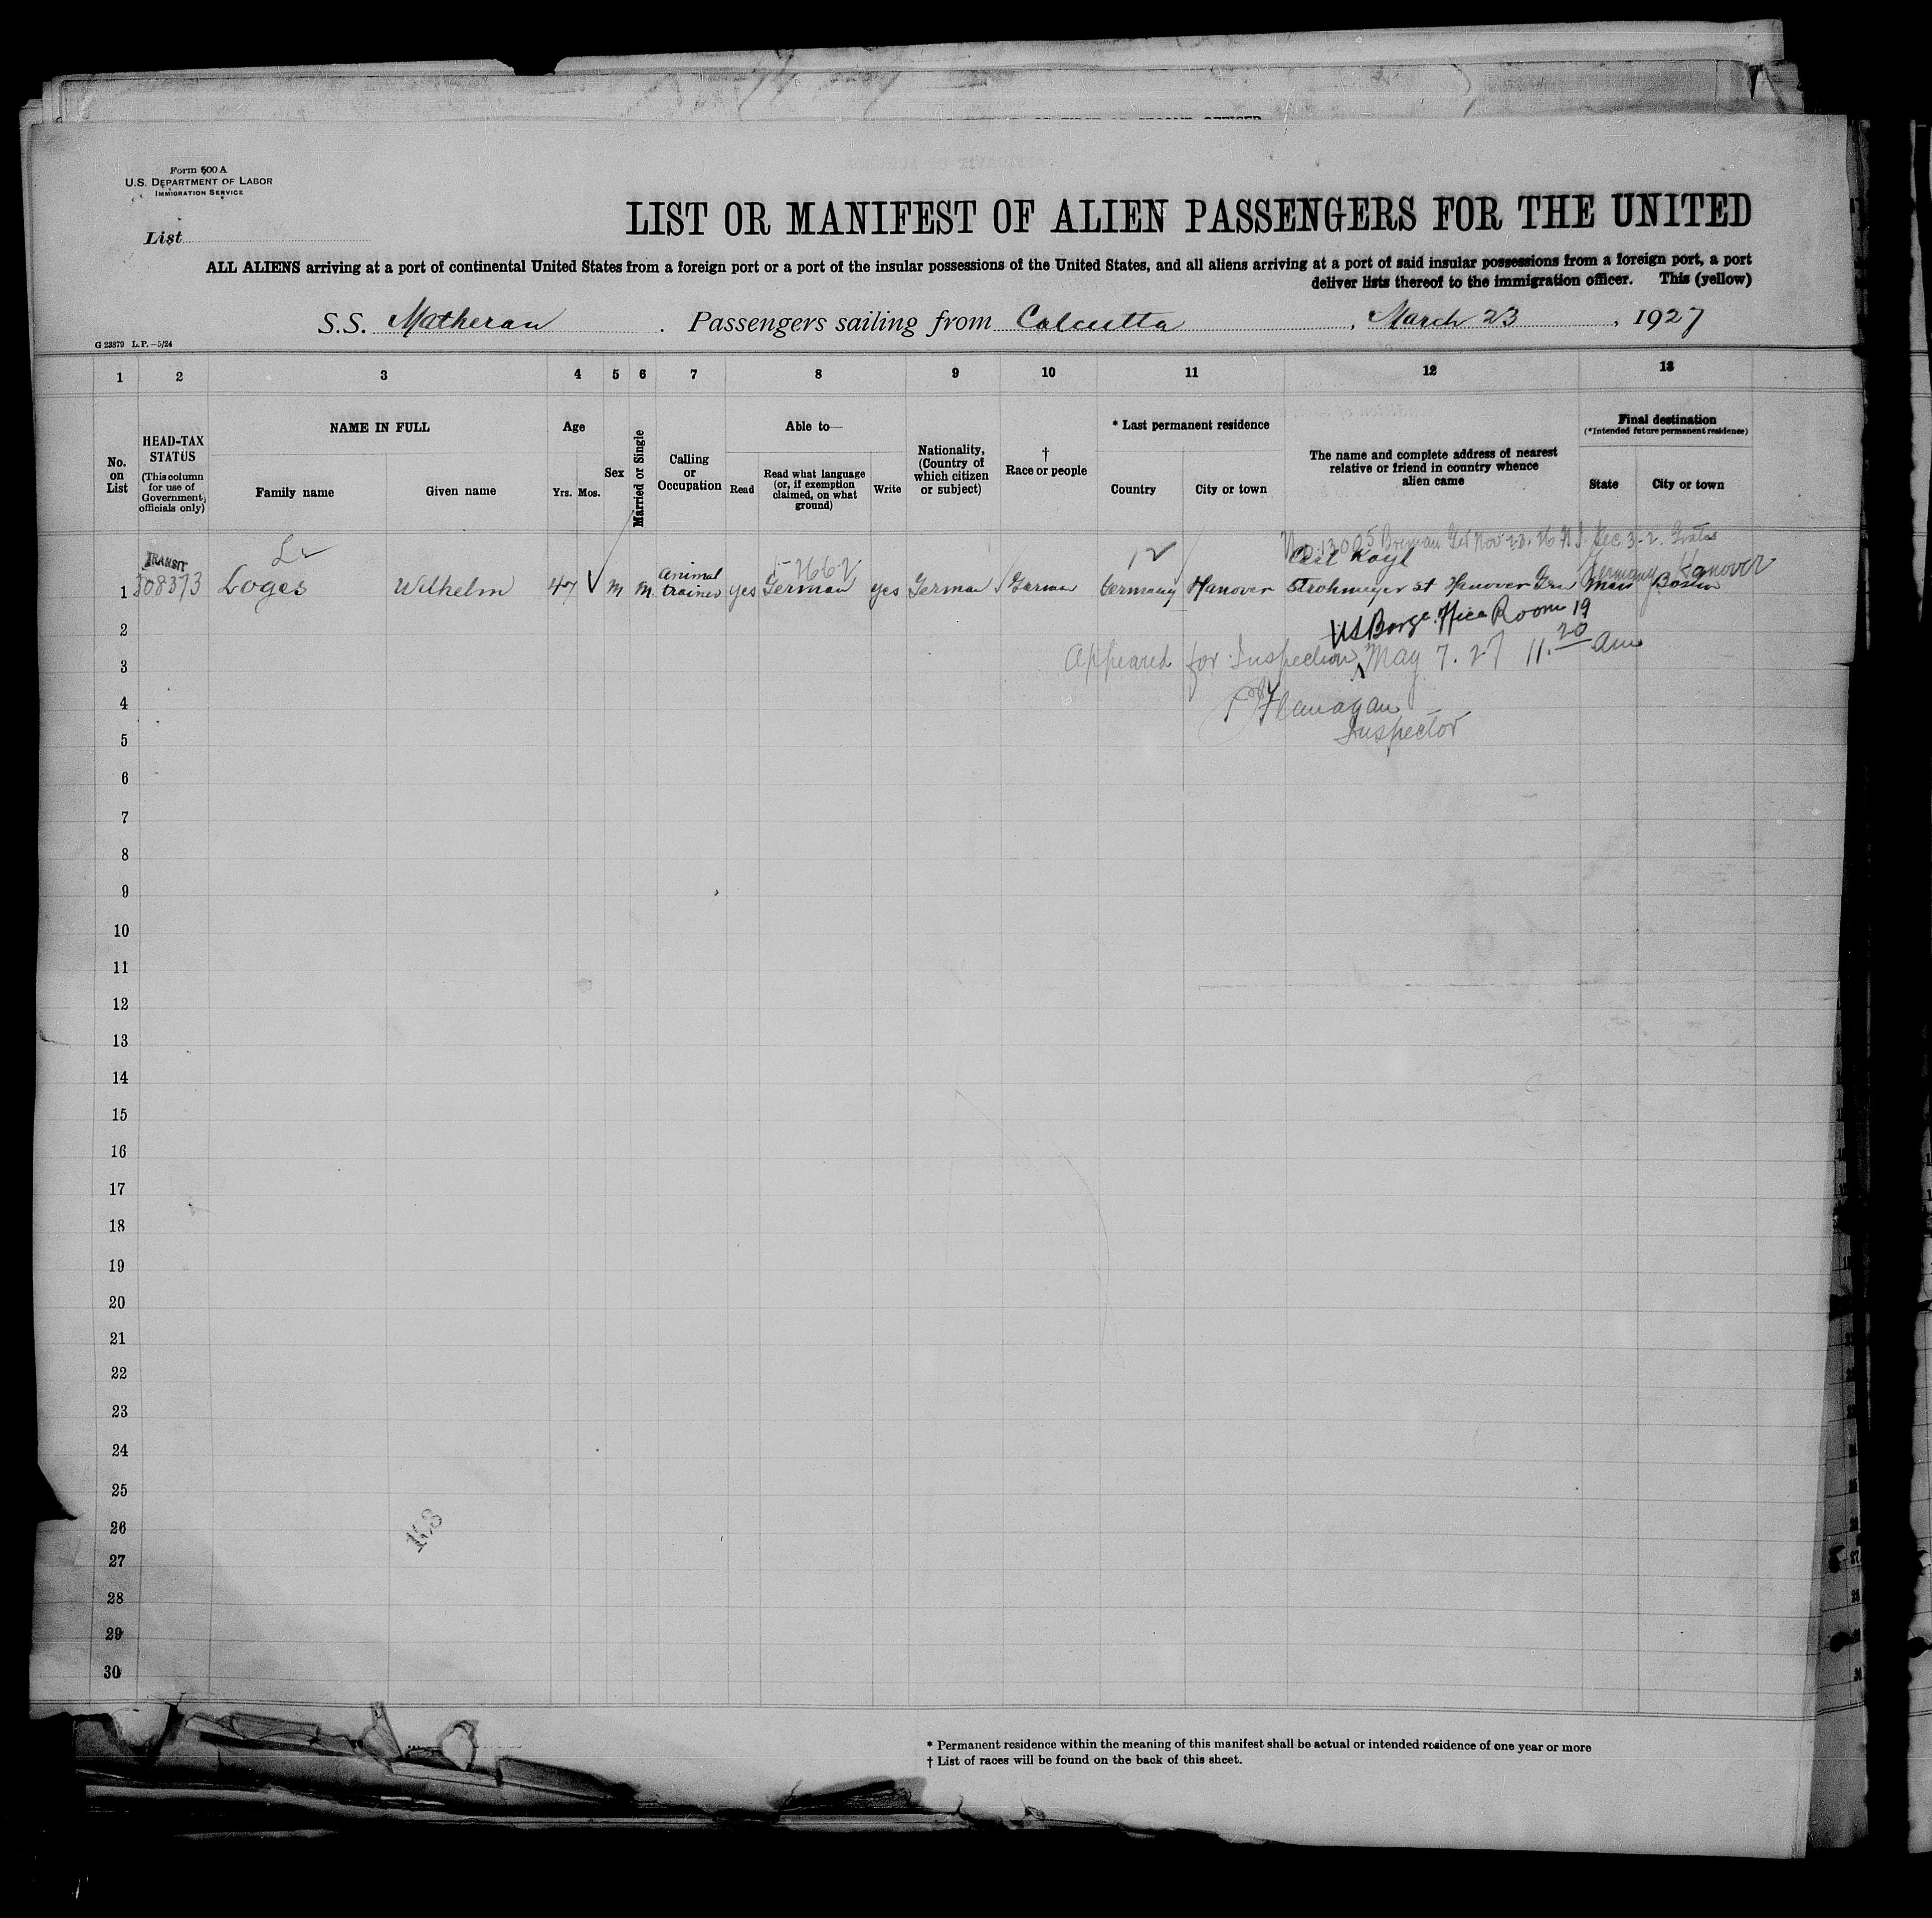 Form 500 A
U.S. DEPARTMENT OF LABOR
IMMIGRATION SERVICE
List
LIST OR MANIFEST OF ALIEN PASSENGERS FOR THE UNITED
ALL ALIENS arriving at a port of continental United States from a foreign port or a port of the insular possessions of the United States, and all aliens arriving at a port of said insular possessions from a foreign port, a port
deliver lists thereof to the immigration officer. This (yellow)
S.S. Matheran . Passengers sailing from Calcutta , March 23 , 1927
G 23879 L. P.—5/24
1 2 3 4 5 6 7 8 9 10 11 12 13
No. on List
HEAD-TAX STATUS
(This column for use of Government officials only)
NAME IN FULL
Family name Given name
Age
Yrs. Mos.
Sex
Married or Single
Calling or Occupation
Able to—
Read
Read what language (or, if exemption claimed, on what ground)
Write
Nationality, (Country of which citizen or subject)
† Race or people
* Last permanent residence
Country City or town
The name and complete address of nearest relative or friend in country whence alien came
Final destination
(*Intended future permanent residence)
State City or town
13005 Bremen Nov 23. 26 Sec. 3-2.
TRANSIT
Germany Hanover
1 308373 Loges Wilhelm 47 M M Animal trainer yes German yes German German Germany Hanover Strohmeyer st Hanover Ger Mass Boston
2 Room 19
3 Appeared for Inspection May 7. 27 11.20 am
4 Flanagan
5 Inspector
6
7
8
9
10
11
12
13
14
15
16
17
18
19
20
21
22
23
24
25
26
168
27
28
29
30
* Permanent residence within the meaning of this manifest shall be actual or intended residence of one year or more
† List of races will be found on the back of this sheet.